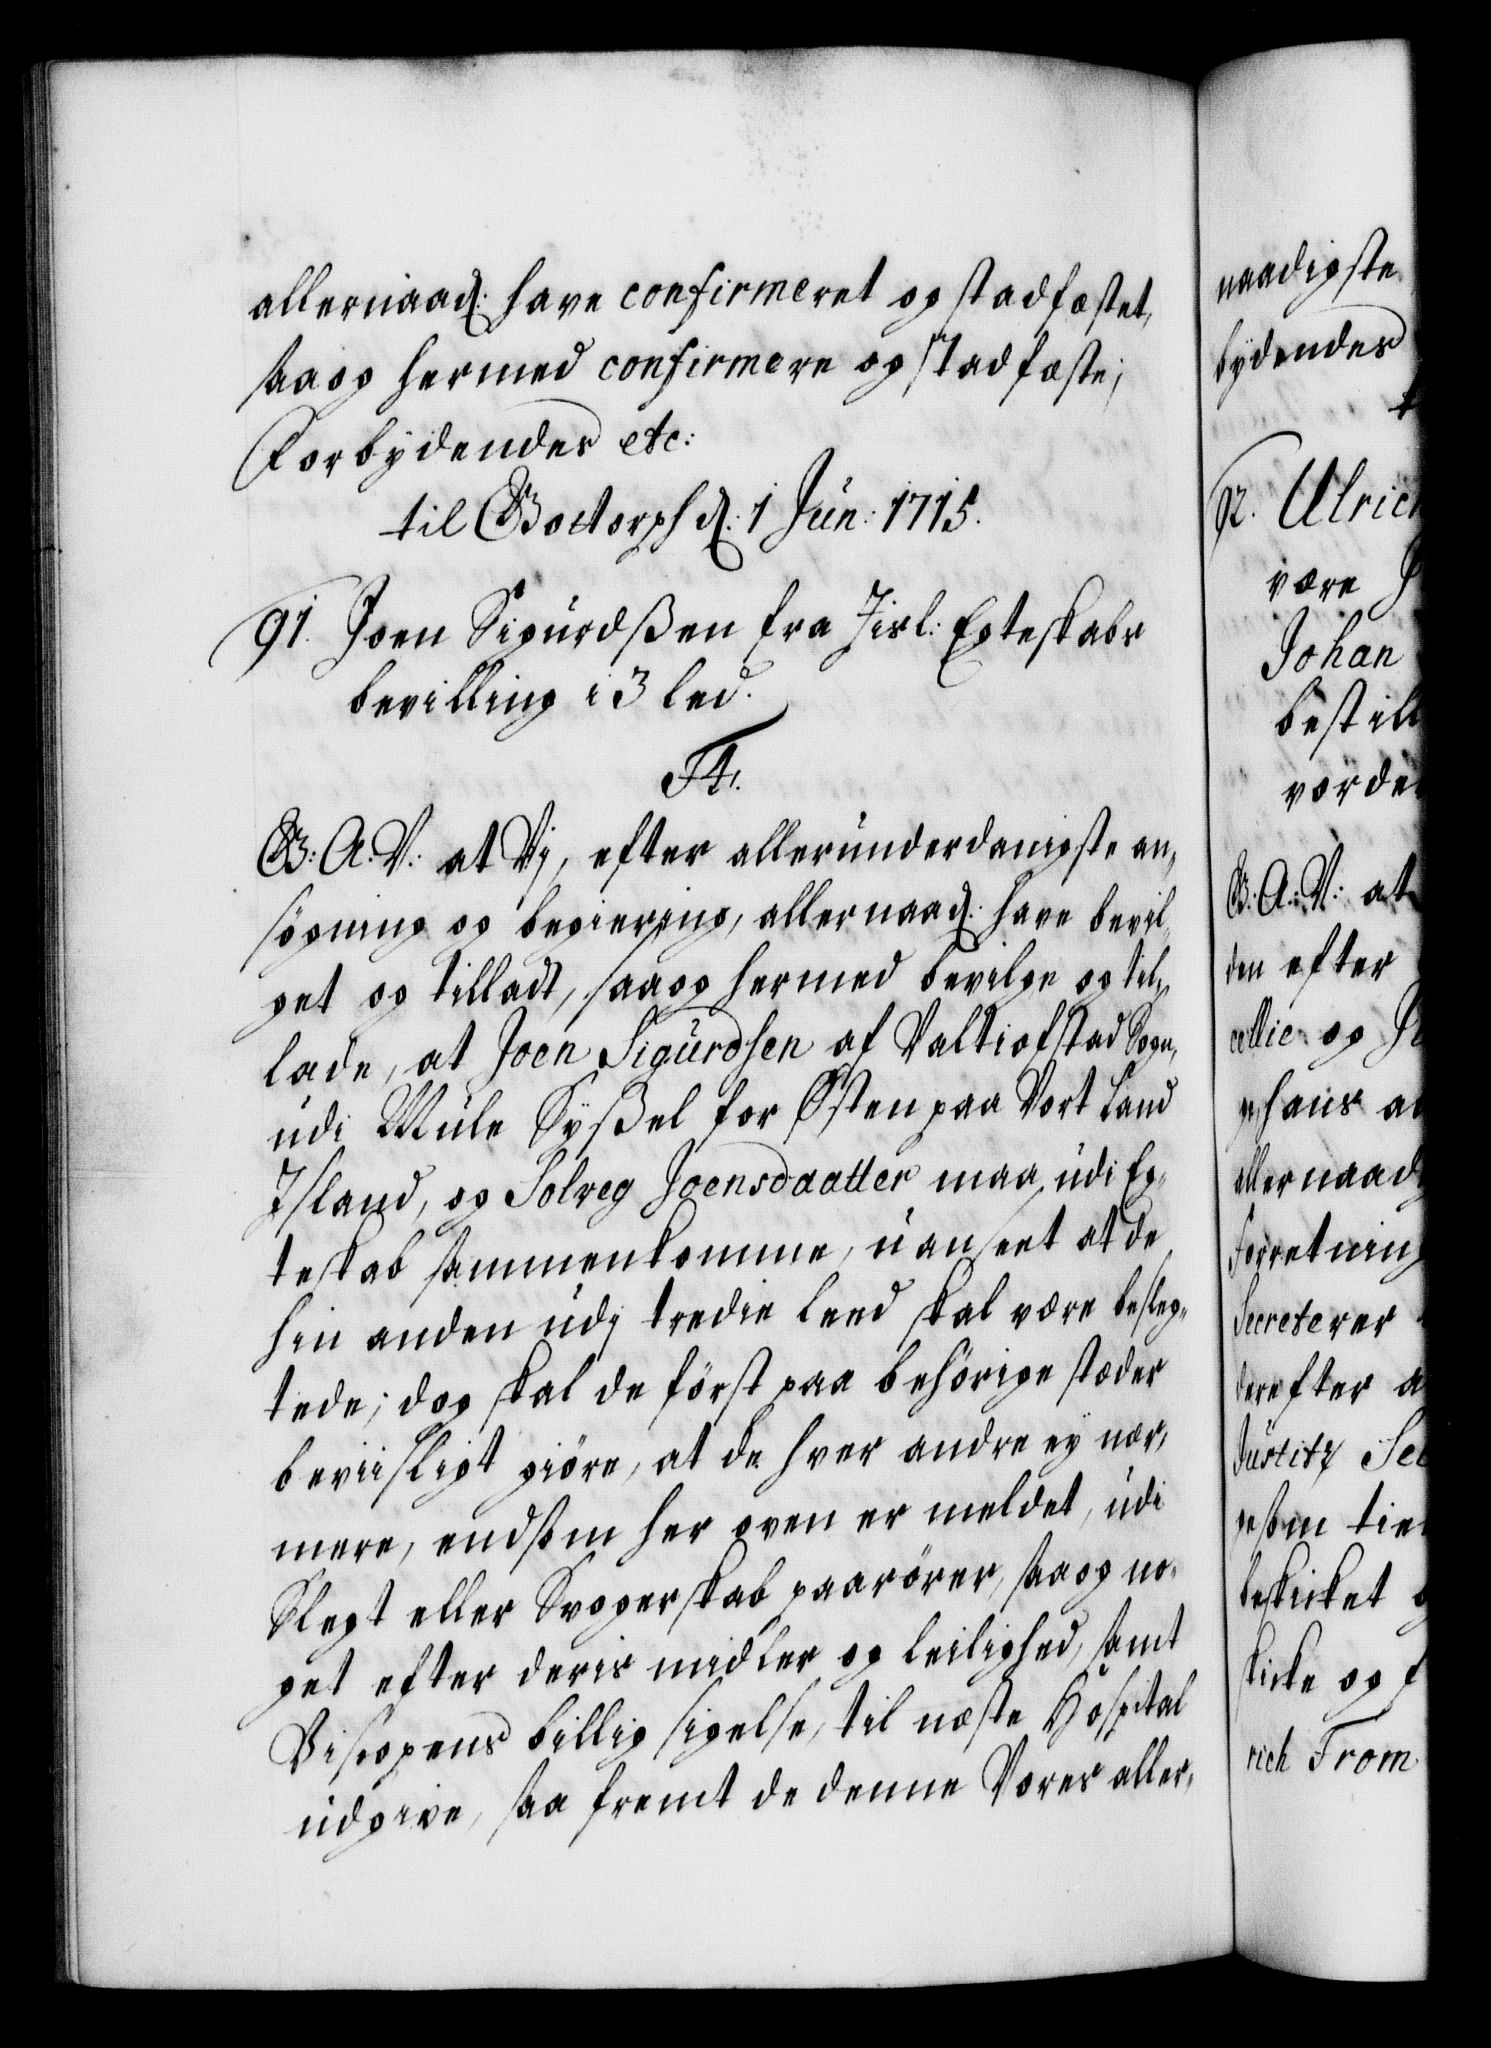 allernaad: have confirmeret og stadfæstet,
saa og hermed confirmere og stadfæste;
Forbydendes etc:
til Gottorph d: 1 Jun: 1715.
91. Joen Sigurdßen fra Jisl: Egteskabs
bevilling i 3 led.
F4.
G: A: V: at Vj, efter allerunderdanigste an,
søgning og begiering, allernaad: have bevil,
get og tilladt, saa og hermed bevilge og til,
lade, at Joen Sigurdsen af Valtiofstad Sogn,
udi Mule Syßel for Østen paa Vort Land
Island, og Solveg Joensdaatter maa udi Eg,
teskab sammenkomme, uanseet at de
hin anden udj tredie leed skal være besleg,
tede; dog skal de først paa behørige stæder
beviisligt giøre, at de hver andre ey nær,
mere, end som her oven er meldet, udi
Slegt eller Svogerskab paarører, saa og no,
get efter deris midler og leilighed, samt
Biscopens billig sigelse, til næste Hospital
udgive, saa fremt de denne Vores aller,
naadigste
bydendes
92. Ulrich
være
Johan
bestill
vorde
G: A: V: at
den efter
cellie og
hans
allernaad
Forretning
Secreterer
derefter
Justitz
som
beskicket
skicke og
rich From